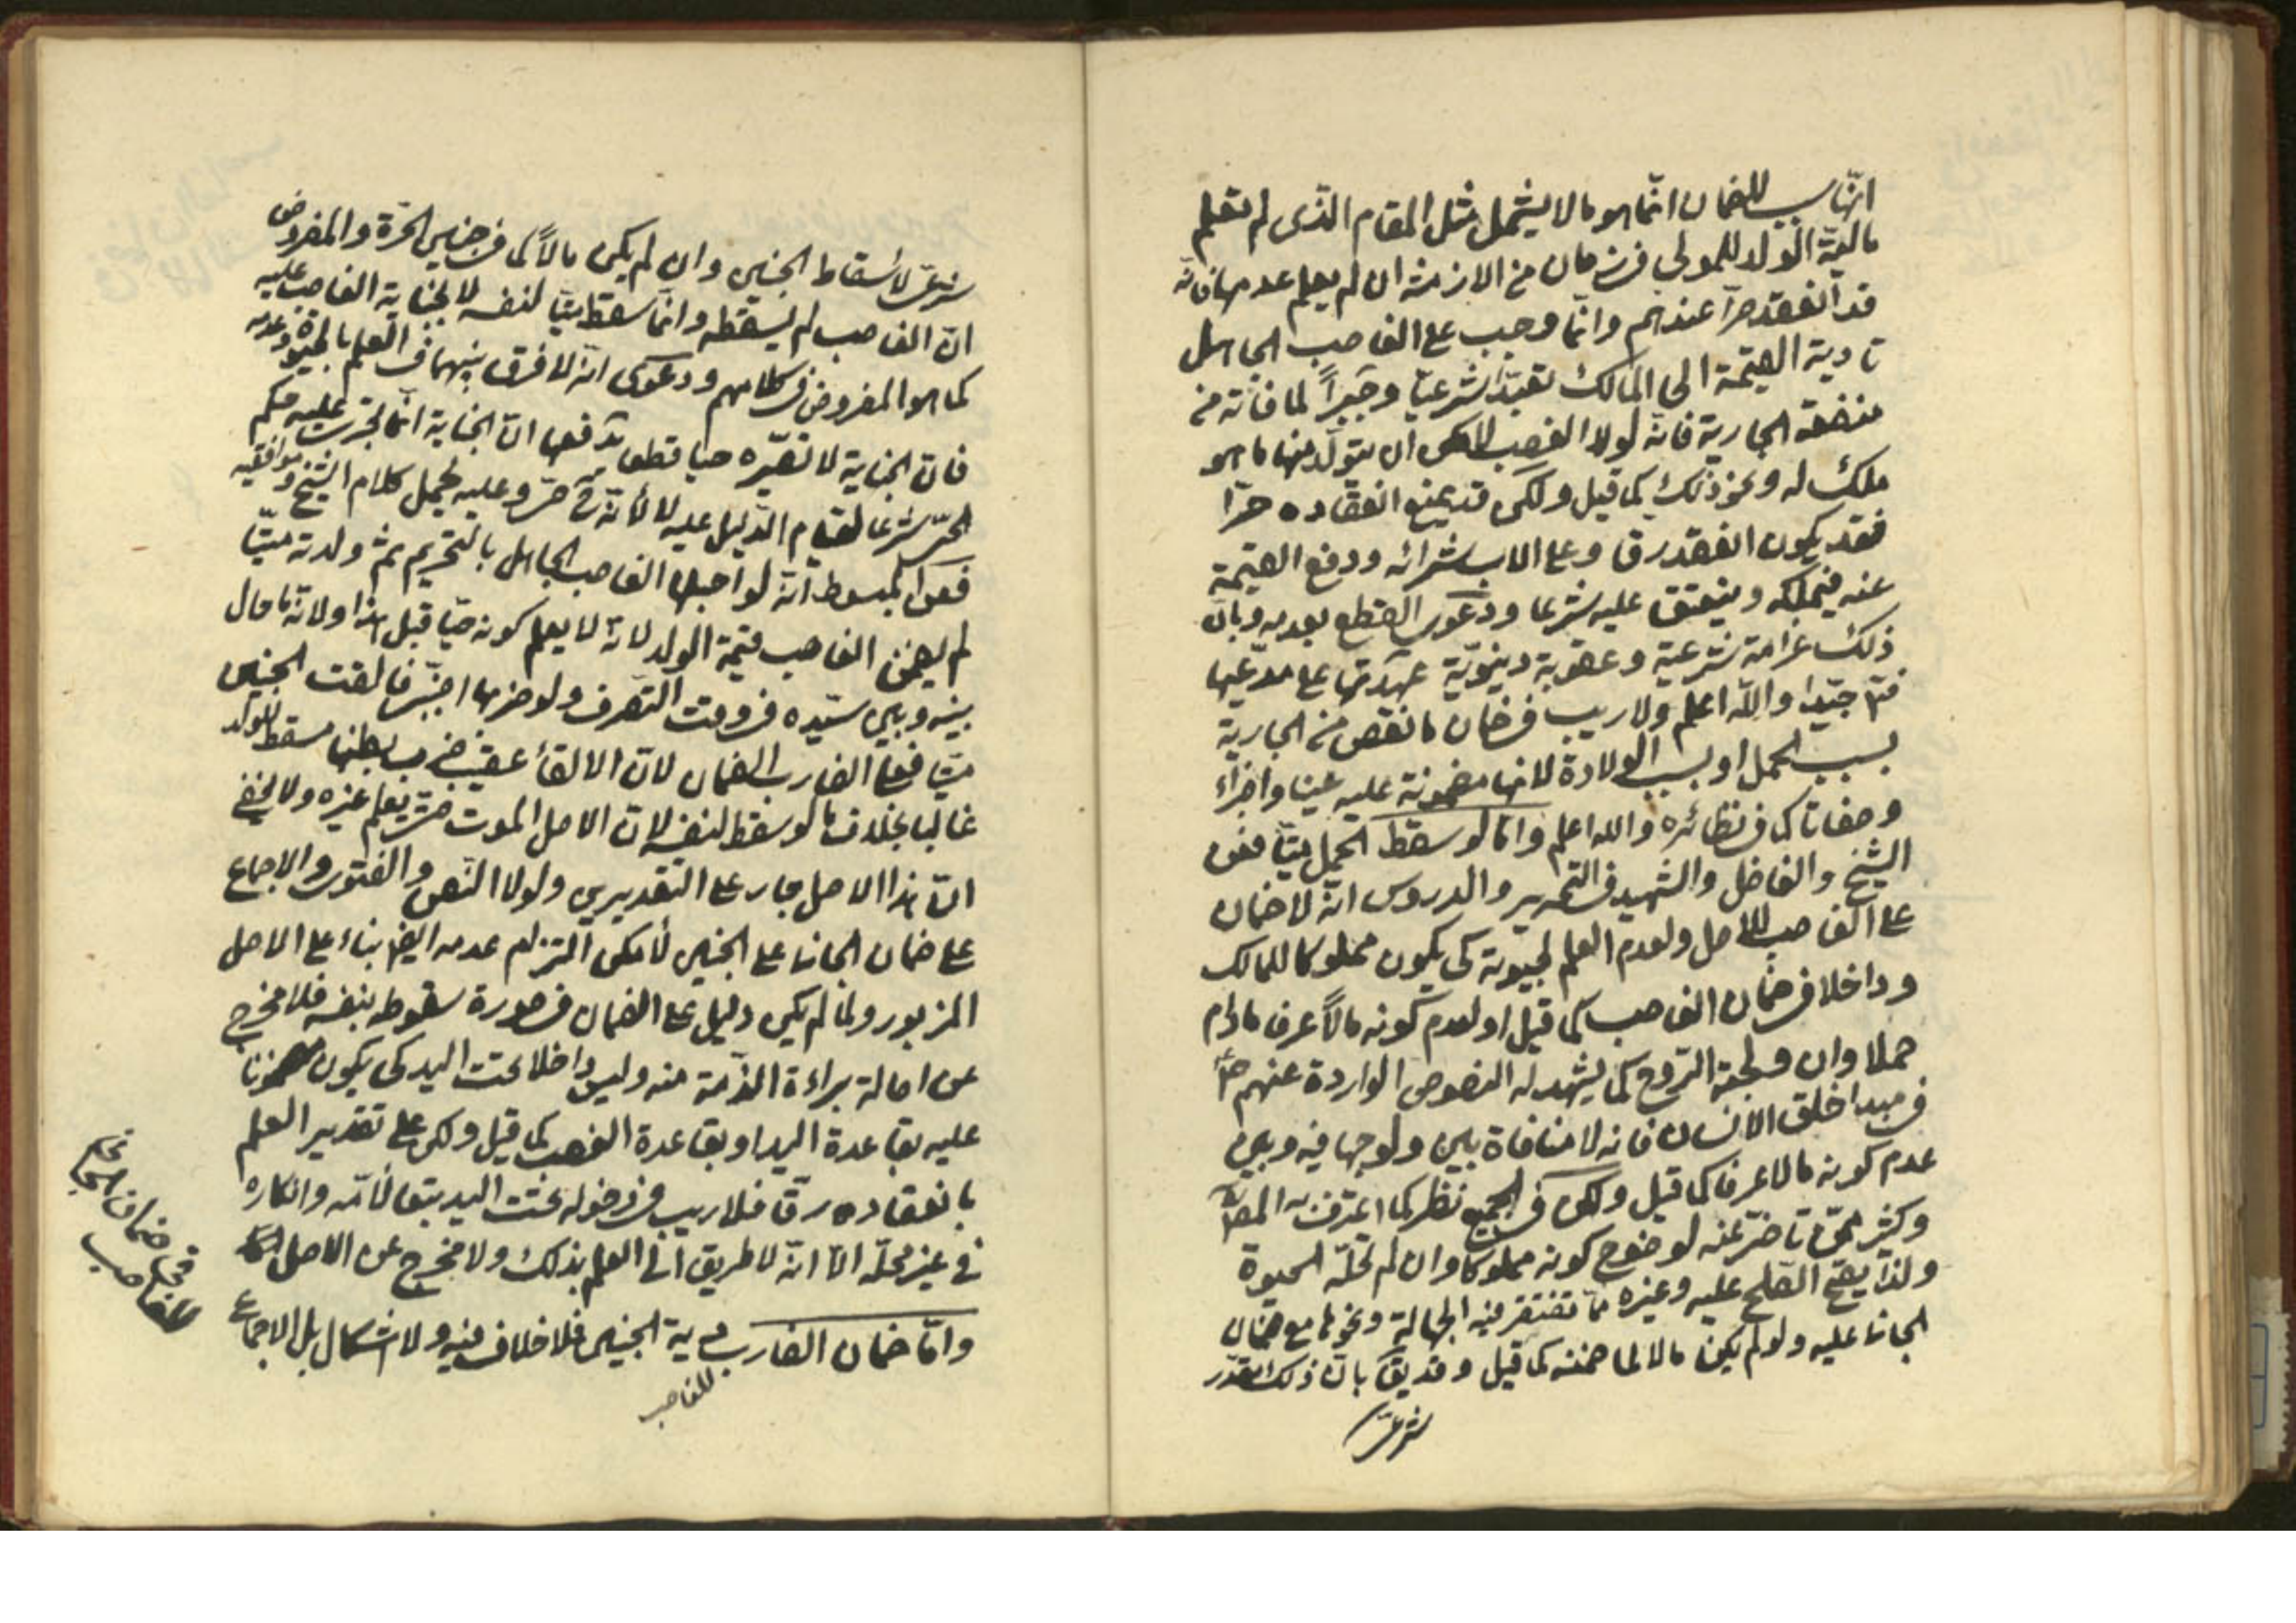 انّ سبب للضمان انّما هو ما لا يشمل مثل المقام الذى لم تعلم
مالية الولد للمولى فى زمان من الازمنة ان لم يعلم عدمها فانّه
قد انعقد حرّا عندهم وانّما وجب على الغاصب الجاهل
تادية القيمة الى المالك تعبّدا شرعيّا وجبراً لما فاته من
منفعة الجارية فانّه لولا الغصب لامكن ان يتولّد منها ما هو
ملك له ونحو ذلك كما قيل ولكن قد يمنع انعقاده حرّا
فقد يكون انعقد رقا وعلى الاب شرائه ودفع القيمة
عنه فيملكه وينعتق عليه شرعا ودعوى القطع بعدمه وبانّ
ذلك غرامة شرعية وعقوبة دنيويّة عهدتها على مدّعيها
فتم جيّدا واللّه اعلم ولا ريب فى ضمان ما نقص من الجارية
بسبب الحمل او بسبب الولادة لانها مضمونة عليه عينا واجزاء
وصفاتا كما فى نظائره والله اعلم وامّا لو سقط الحمل ميّتا فعن
الشيخ والفاضل والشهيد فى التحرير والدروس انّه لا ضمان
على الغاصب للاصل ولعدم العلم بحيوته كى يكون مملوكا للمالك
وداخلا فى ضمان الغاصب كما قيل او لعدم كونه مالاً عرفا مادام
حملا وان ولجته الرّوح كما يشهد له النصوص الواردة عنهم
فى مبدا خلق الانسان فانه لا منافاة بين ولوجها فيه وبين
عدم كونه مالا عرفا كما قيل ولكن فى الجميع نظر كما اعترف به
وكثير ممّن تاخّر عنه لوضوح كونه مملوكا وان لم تحلّه الحيوة
ولذا يصحّ الصّلح عليه وغيره ممّا تغتفر فيه الجهالة ونحوها مع ضمان
الجانى عليه ولو لم يكن مالا لما ضمنه كما قيل وقد يق بانّ ذلك مقدّر
شرعىّ
شرعىّ لاسقاط الجنين وان لم يكن مالاً كما فى جنين الحرّة والمفروض
انّ الغاصب لم يسقطه وانّما سقط ميّتا لنفسه لا لجناية الغاصب عليه
كما هو المفروض فى كلامهم ودعوى انّه لا فرق بينهما فى العلم بالحيوة وعدمه
فان الجناية لا تصيّره حيا قطعا يدفعها انّ الجناية انّما يجرى عليه حكم
الحىّ شرعا لقيام الدّليل عليه لا لانّه حىّ وعليه يحمل كلام الشيخ وموافقيه
فعن المبسوط انّه لو احبلها الغاصب الجاهل بالتحريم ثمّ ولدته ميّتا
لم يضمن الغاصب قيمة الولد لانّه لا يعلم كونه حيّا قبل هذا ولانّه ما حال
بينه وبين سيّده فى وقت التصرف ولو ضربها اجنبىّ فالقت الجنين
ميّتا فعلى الضارب الضمان لانّ الالقاء عقيب ضرب بطنها مسقط للولد
غالبا بخلاف ما لو سقط لنفسه لانّ الاصل الموت حتى يعلم غيره ولا يخفى
انّ هذا الاصل جار على التقديرين ولولا النّص والفتوى والاجماع
على ضمان الجانى على الجنين لامكن التزام عدمه ايضا بناء على الاصل
المزبور ولمّا لم يكن دليل على الضمان فى صورة سقوطه بنفسه فلا مخرج
عن اصالة براءة الذّمة منه وليس داخلا تحت اليد كى يكون مضمونا
عليه بقاعدة اليد او بقاعدة الغصب كما قيل ولكن على تقدير العلم
بانعقاده رقّا فلا ريب فى دخوله تحت اليد بتبعا لأمّه وانكاره
فى غير محلّه الّا انّه لا طريق الى العلم بذلك ولا مخرج عن الاصل
وامّا ضمان الضارب دية الجنين فلا خلاف فيه ولا اشكال بل الاجماع
للغاصب
فى ضمان الجانى
للغاصب